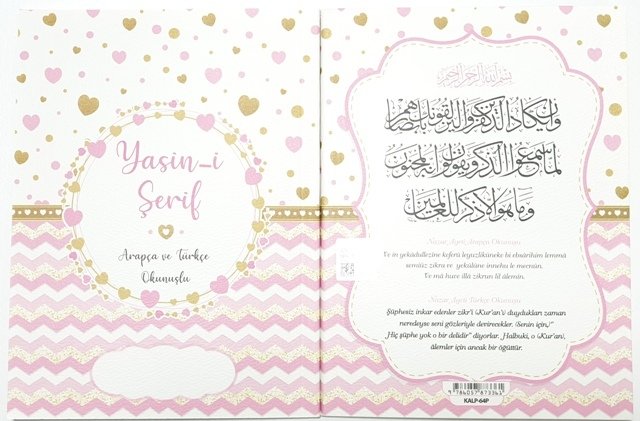 Yasin-i
Şerif
Arapça ve Türkçe
Okunuşlu
بسم الله الرحمن الرحيم
وإن يكاد الذين كفروا ليزلقونك بأبصارهم
لما سمعوا الذكر ويقولون إنه لمجنون
وما هو إلا ذكر للعالمين
Nazar Ayeti Arapça Okunuşu
Ve in yekâdüllezîne keferû leyuzlikûneke bi ebsârihim lemmâ
semiûz zikra ve yekûlûne innehu le mecnûn.
Ve mâ huve illâ zikrun lil âlemin.
Nazar Ayeti Türkçe Okunuşu
Şüphesiz inkar edenler zikr'i (Kur'an'ı) duydukları zaman
neredeyse seni gözleriyle devirecekler. (Senin için,)"
Hiç şüphe yok o bir delidir" diyorlar. Halbuki, o (Kur'an),
âlemler için ancak bir öğüttür.
9 786057 873361
KALP-64P